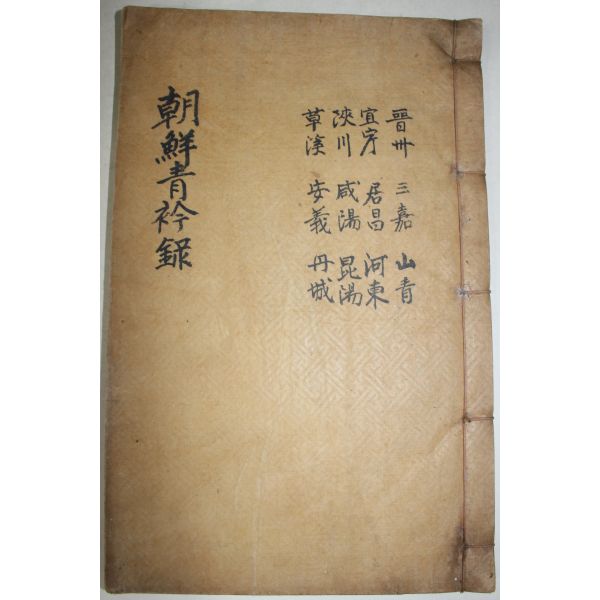 晉州 三嘉 山青
宜宁 居昌 河東
陜川 咸陽 昆陽
草溪 安義 丹城
朝鮮青衿錄